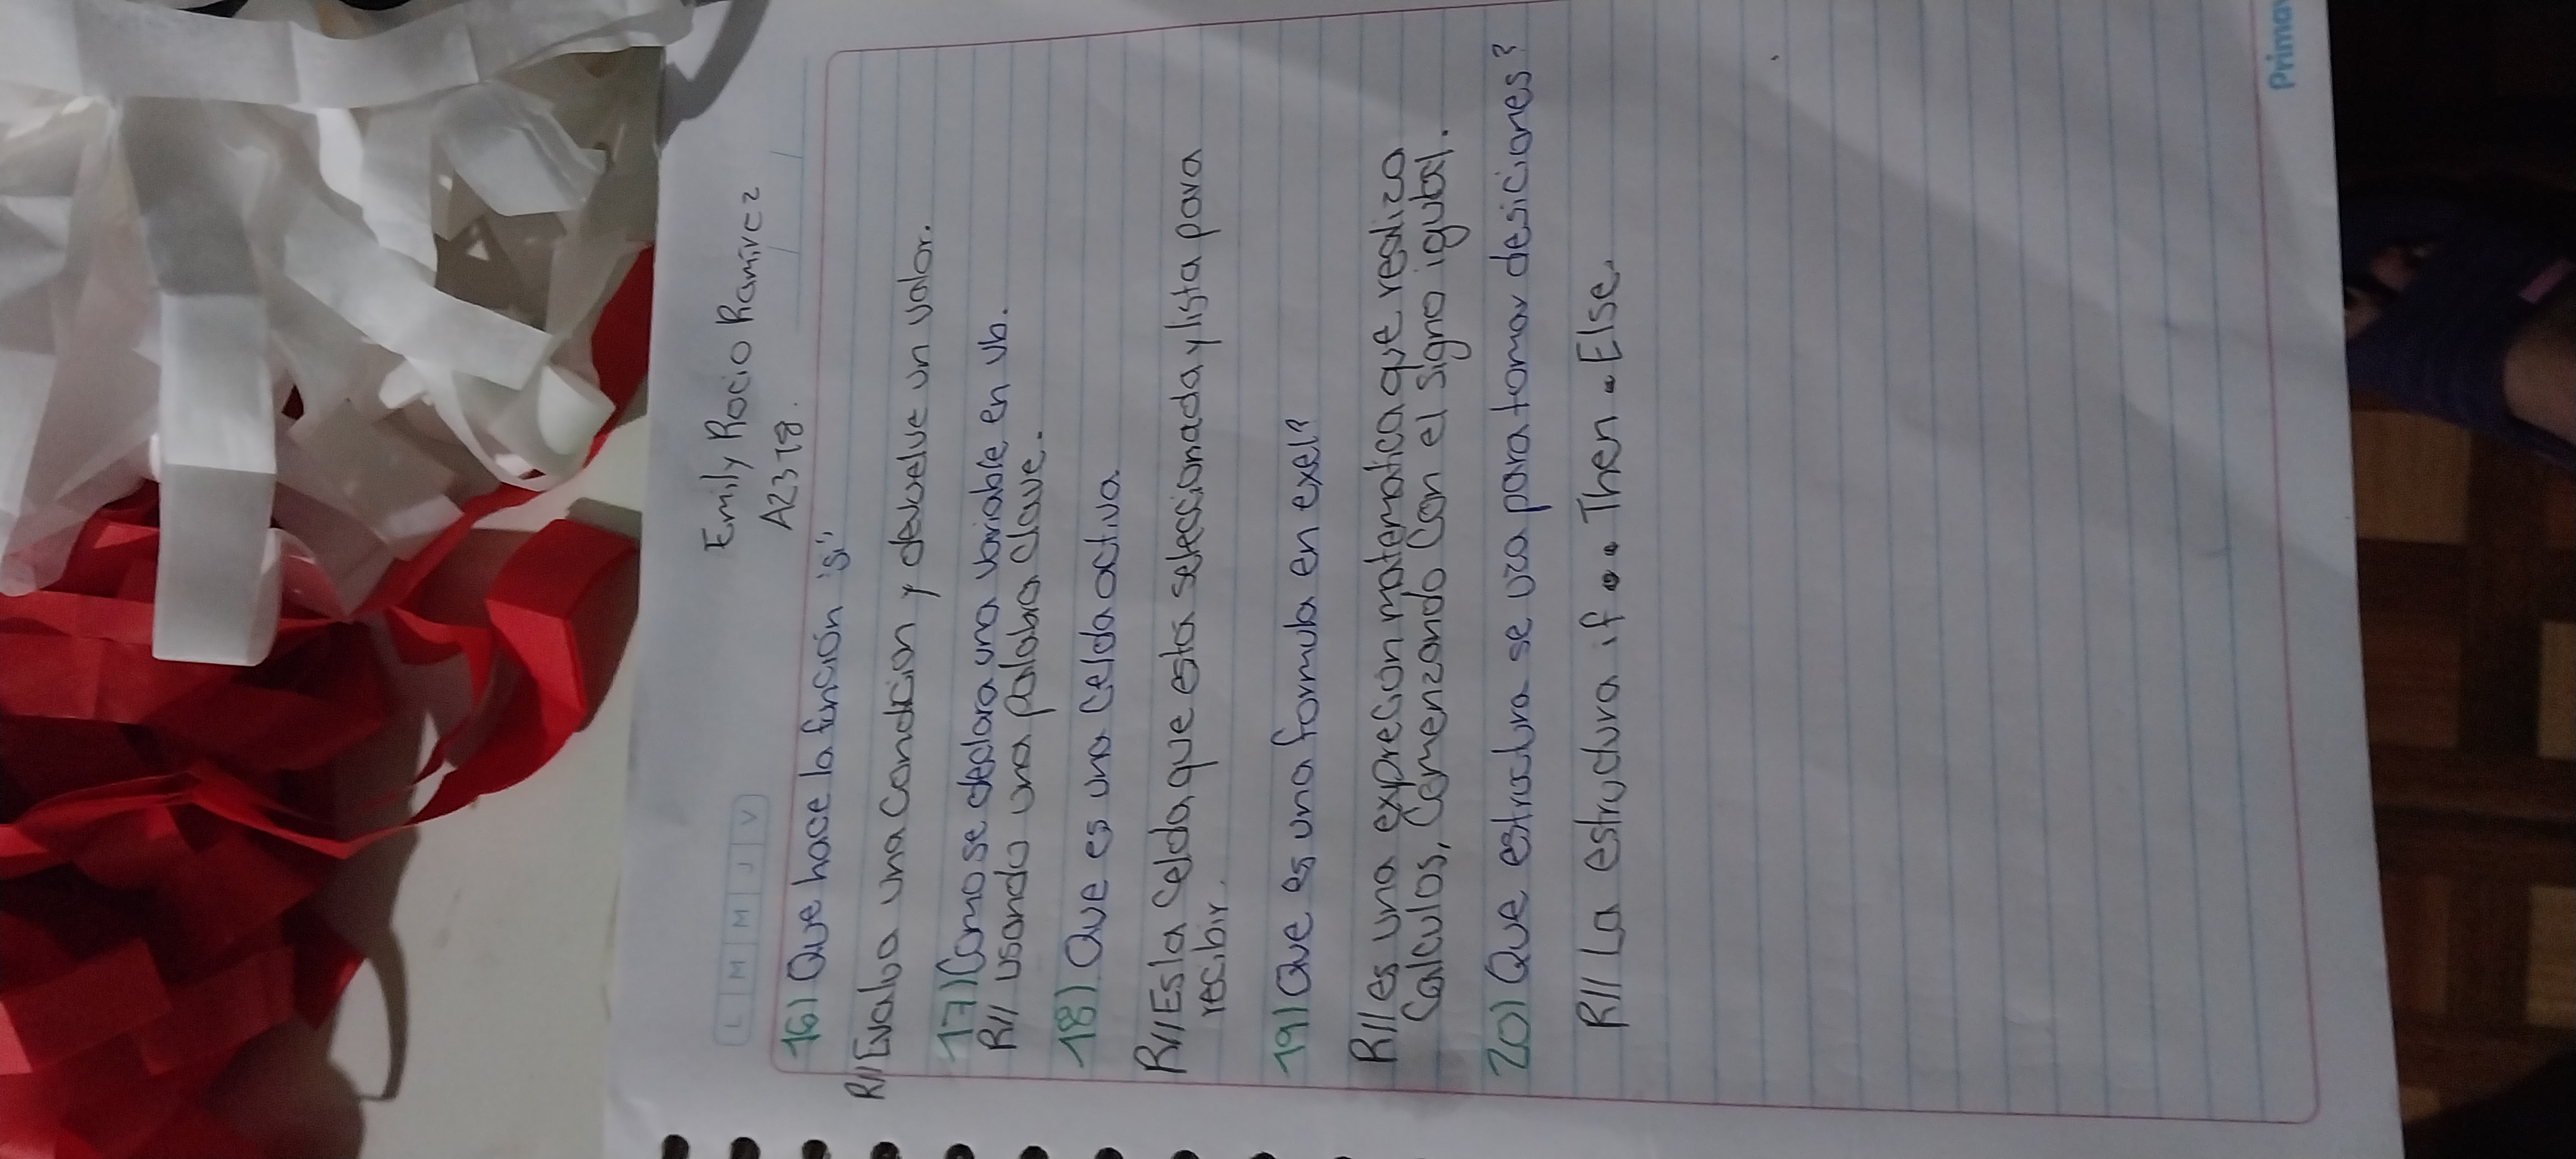 Emily Rocio Ramírez
A23T8.
L M M J V
16) Que hace la función "si"
R// Evalua una Condicion y devuelve un valor.
17) Como se declara una variable en vb.
R// usando una palabra Clave.
18) Que es una Celda activa.
R// Es la Celda que esta seleccionada y lista para
recibir.
19) Que es una formula en exel?
R// es una exprecion matematica que realiza
Calculos, Comenzando Con el signo igual.
20) Que estructura se usa para tomar desiciones?
R// La estructura if... Then - Else.